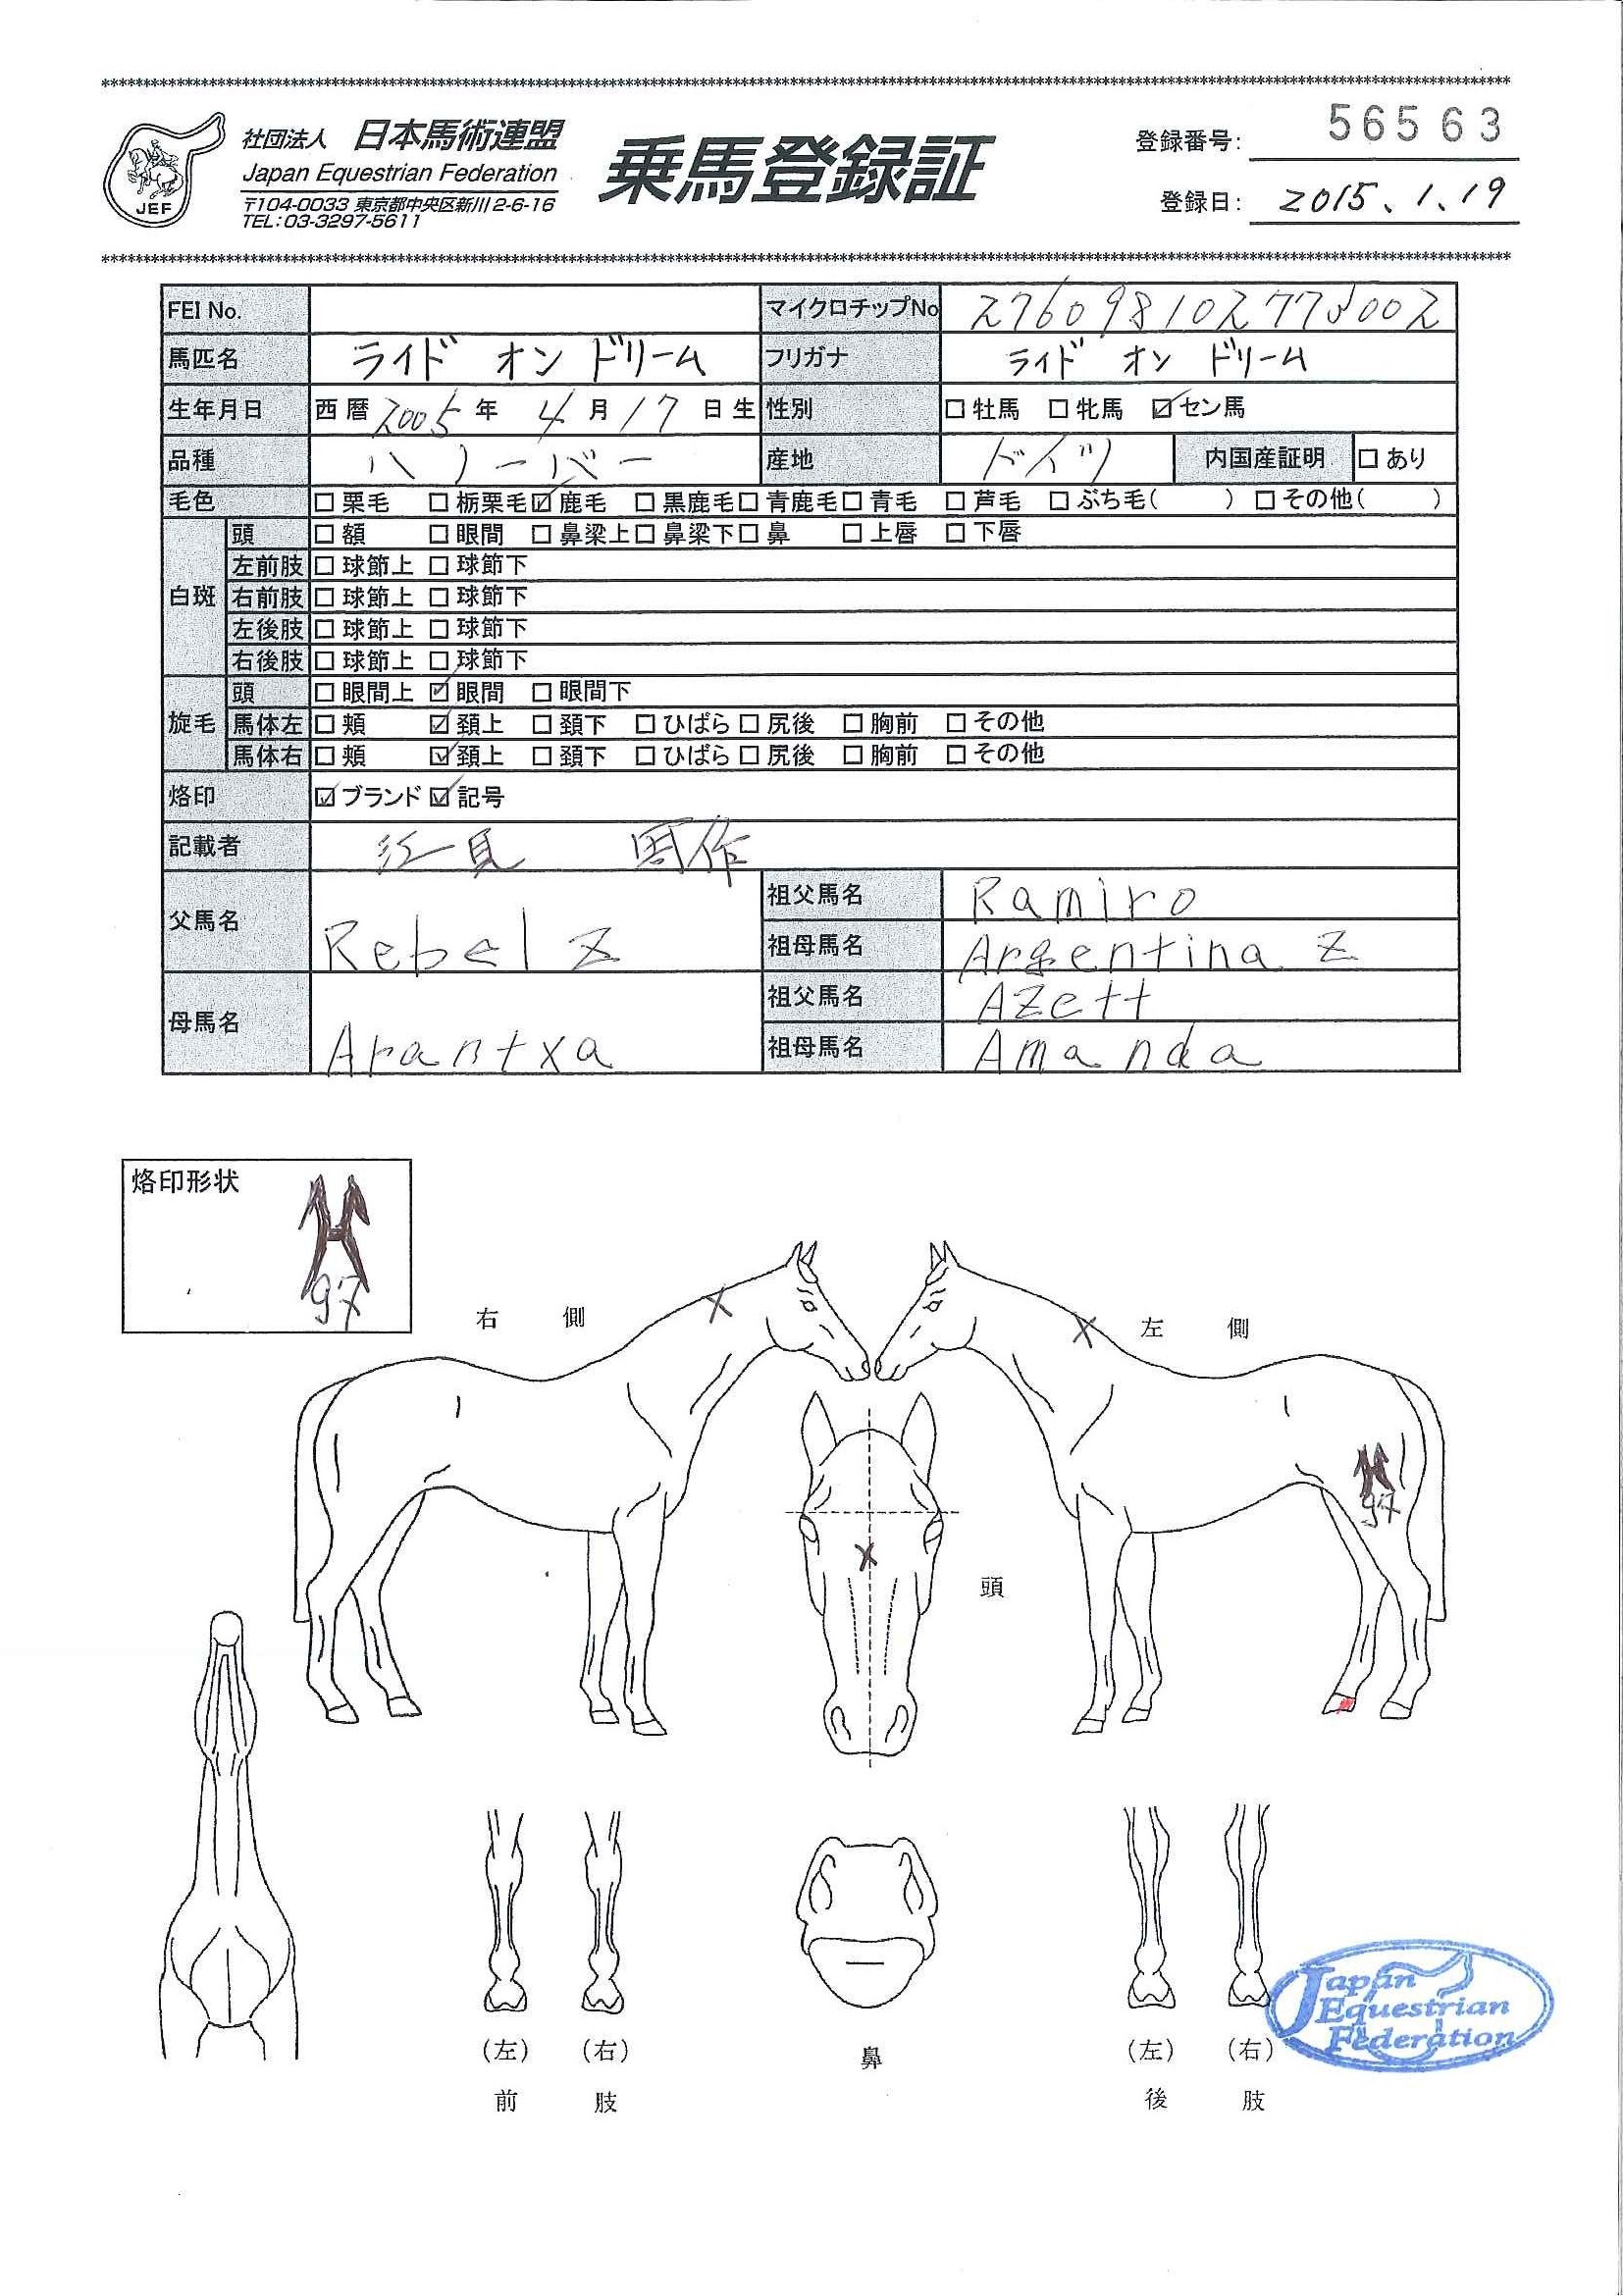 社団法人 日本馬術連盟
Japan Equestrian Federation
〒104-0033 東京都中央区新川2-6-16
TEL:03-3297-5611
JEF
乗馬登録証
登録番号: 56563
登録日: 2015.1.19
FEI No. マイクロチップNo
馬匹名 ライド オン ドリーム フリガナ ライド オン ドリーム
生年月日 西暦 2005 年 4 月 17 日 生 性別 □ 牡馬 □ 牝馬 ☑ セン馬
品種 ハノーバー 産地 ドイツ 内国産証明 □ あり
毛色 □ 栗毛 □ 栃栗毛 ☑ 鹿毛 □ 黒鹿毛 □ 青鹿毛 □ 青毛 □ 芦毛 □ ぶち毛( ) □ その他( )
白斑
頭 □ 額 □ 眼間 □ 鼻梁上 □ 鼻梁下 □ 鼻 □ 上唇 □ 下唇
左前肢 □ 球節上 □ 球節下
右前肢 □ 球節上 □ 球節下
左後肢 □ 球節上 □ 球節下
右後肢 □ 球節上 □ 球節下
旋毛
頭 □ 眼間上 ☑ 眼間 □ 眼間下
馬体左 □ 頬 ☑ 頚上 □ 頚下 □ ひばら □ 尻後 □ 胸前 □ その他
馬体右 □ 頬 ☑ 頚上 □ 頚下 □ ひばら □ 尻後 □ 胸前 □ その他
烙印 ☑ ブランド ☑ 記号
記載者
父馬名 Rebel Z 祖父馬名 Ramiro
祖母馬名 Argentina Z
母馬名 Arantxa 祖父馬名 AZett
祖母馬名 Amanda
烙印形状
H
97
右 側
左 側
H
97
頭
(左) (右)
前 肢
鼻
(左) (右)
後 肢
Japan
Equestrian
Federation